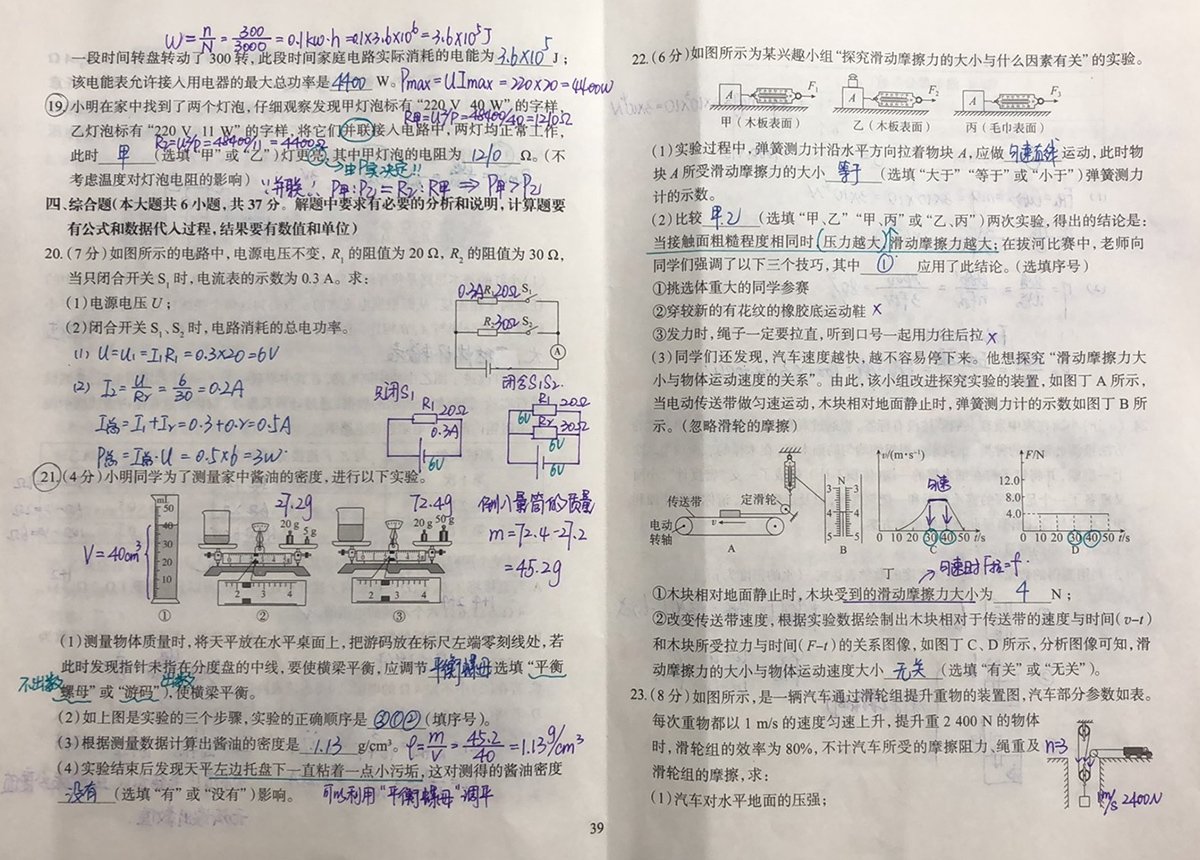 W=n/N=300/3000=0.1kw·h=0.1×3.6×10⁶=3.6×10⁵J
一段时间转盘转动了 300 转,此段时间家庭电路实际消耗的电能为 3.6×10⁵ J;
该电能表允许接入用电器的最大总功率是 4400 W。Pmax=UImax=220×20=4400W
19.小明在家中找到了两个灯泡,仔细观察发现甲灯泡标有“220 V 40 W”的字样,
R甲=U²/P=48400/40=1210Ω
乙灯泡标有“220 V 11 W”的字样,将它们并联接入电路中,两灯均正常工作,
R乙=U²/P=48400/11=4400Ω
此时 甲 (选填“甲”或“乙”)灯更亮,其中甲灯泡的电阻为 1210 Ω。(不
由P实决定!!
考虑温度对灯泡电阻的影响) ∵并联∴P甲:P乙=R乙:R甲⇒P甲>P乙
四、综合题(本大题共 6 小题,共 37 分。解题中要求有必要的分析和说明,计算题要
有公式和数据代入过程,结果要有数值和单位)
20.(7 分)如图所示的电路中,电源电压不变,R₁ 的阻值为 20 Ω,R₂ 的阻值为 30 Ω,
当只闭合开关 S₁ 时,电流表的示数为 0.3 A。求:
(1)电源电压 U;
(2)闭合开关 S₁、S₂ 时,电路消耗的总电功率。
0.3A R₁ 20Ω S₁
R₂ 30Ω S₂
A
(1) U=U₁=I₁R₁=0.3×20=6V
(2) I₂=U/R₂=6/30=0.2A
I总=I₁+I₂=0.3+0.2=0.5A
P总=I总·U=0.5×6=3W
只闭S₁
R₁ 20Ω
0.3A
6V
闭合S₁S₂
R₁ 20Ω
6V
R₂ 30Ω
6V
6V
21.(4 分)小明同学为了测量家中酱油的密度,进行以下实验。
27.2g
72.4g
倒入量筒的质量
m=72.4-27.2
=45.2g
V=40cm³
mL
50
40
30
20
10
20 g 5 g
20 g 50 g
2 3 4
2 3 4
① ② ③
(1)测量物体质量时,将天平放在水平桌面上,把游码放在标尺左端零刻线处,若
此时发现指针未指在分度盘的中线,要使横梁平衡,应调节 平衡螺母 选填“平衡
不出数 出数
螺母”或“游码”),使横梁平衡。
(2)如上图是实验的三个步骤,实验的正确顺序是 ③①② (填序号)。
(3)根据测量数据计算出酱油的密度是 1.13 g/cm³。ρ=m/V=45.2/40=1.13g/cm³
(4)实验结束后发现天平左边托盘下一直粘着一点小污垢,这对测得的酱油密度
没有 (选填“有”或“没有”)影响。 可以利用“平衡螺母”调平
39
22.(6 分)如图所示为某兴趣小组“探究滑动摩擦力的大小与什么因素有关”的实验。
A F₁
A F₂
A F₃
甲(木板表面) 乙(木板表面) 丙(毛巾表面)
(1)实验过程中,弹簧测力计沿水平方向拉着物块 A,应做 匀速直线 运动,此时物
块 A 所受滑动摩擦力的大小 等于 (选填“大于”“等于”或“小于”)弹簧测力
计的示数。
(2)比较 甲.乙 (选填“甲、乙”“甲、丙”或“乙、丙”)两次实验,得出的结论是:
当接触面粗糙程度相同时,压力越大,滑动摩擦力越大;在拔河比赛中,老师向
同学们强调了以下三个技巧,其中 ① 应用了此结论。(选填序号)
①挑选体重大的同学参赛
②穿较新的有花纹的橡胶底运动鞋 ×
③发力时,绳子一定要拉直,听到口号一起用力往后拉 ×
(3)同学们还发现,汽车速度越快,越不容易停下来。他想探究“滑动摩擦力大
小与物体运动速度的关系”。由此,该小组改进探究实验的装置,如图丁 A 所示,
当电动传送带做匀速运动,木块相对地面静止时,弹簧测力计的示数如图丁 B 所
示。(忽略滑轮的摩擦)
传送带 定滑轮
电动
转轴
v
A
N
3 3
4 4
5 5
B
v/(m·s⁻¹)
匀速
0 10 20 30 40 50 t/s
C
F/N
12.0
8.0
4.0
0 10 20 30 40 50 t/s
D
丁
匀速时F拉=f
①木块相对地面静止时,木块受到的滑动摩擦力大小为 4 N;
②改变传送带速度,根据实验数据绘制出木块相对于传送带的速度与时间(v-t)
和木块所受拉力与时间(F-t)的关系图像,如图丁 C、D 所示,分析图像可知,滑
动摩擦力的大小与物体运动速度大小 无关 (选填“有关”或“无关”)。
23.(8 分)如图所示,是一辆汽车通过滑轮组提升重物的装置图,汽车部分参数如表。
每次重物都以 1 m/s 的速度匀速上升,提升重 2 400 N 的物体
时,滑轮组的效率为 80%,不计汽车所受的摩擦阻力、绳重及
滑轮组的摩擦,求:
(1)汽车对水平地面的压强;
n=3
1m/s 2400N